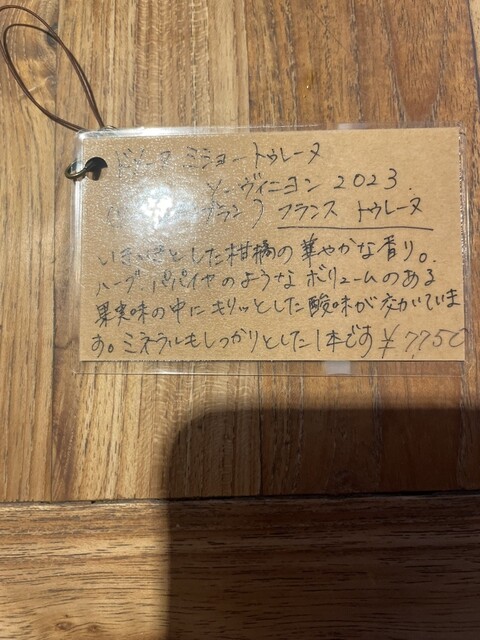 ドメーヌ ミショー トゥレーヌ
ソーヴィニヨン 2023.
ブラン) フランス トゥレーヌ
いきいきとした柑橘の華やかな香り。
ハーブ、パパイヤのようなボリュームのある
果実味の中にキリッとした酸味が交がていま
す。ミネラルもしっかりとした1本です ¥7,750